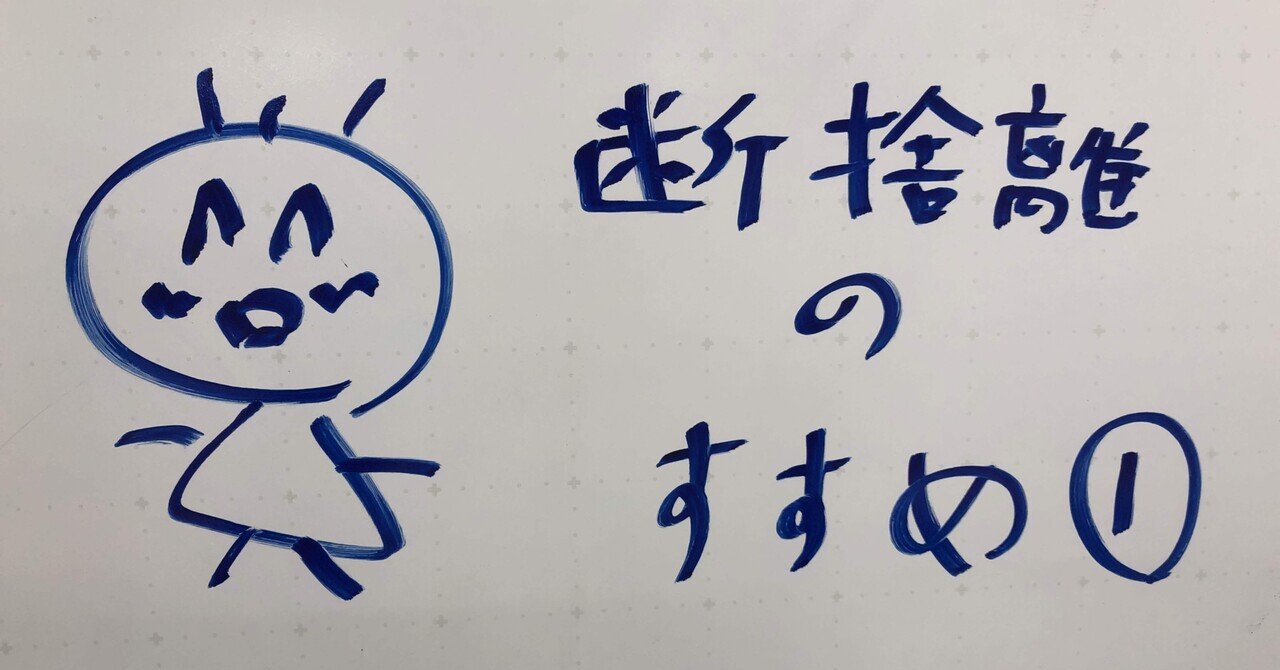 断捨離
の
すすめ①